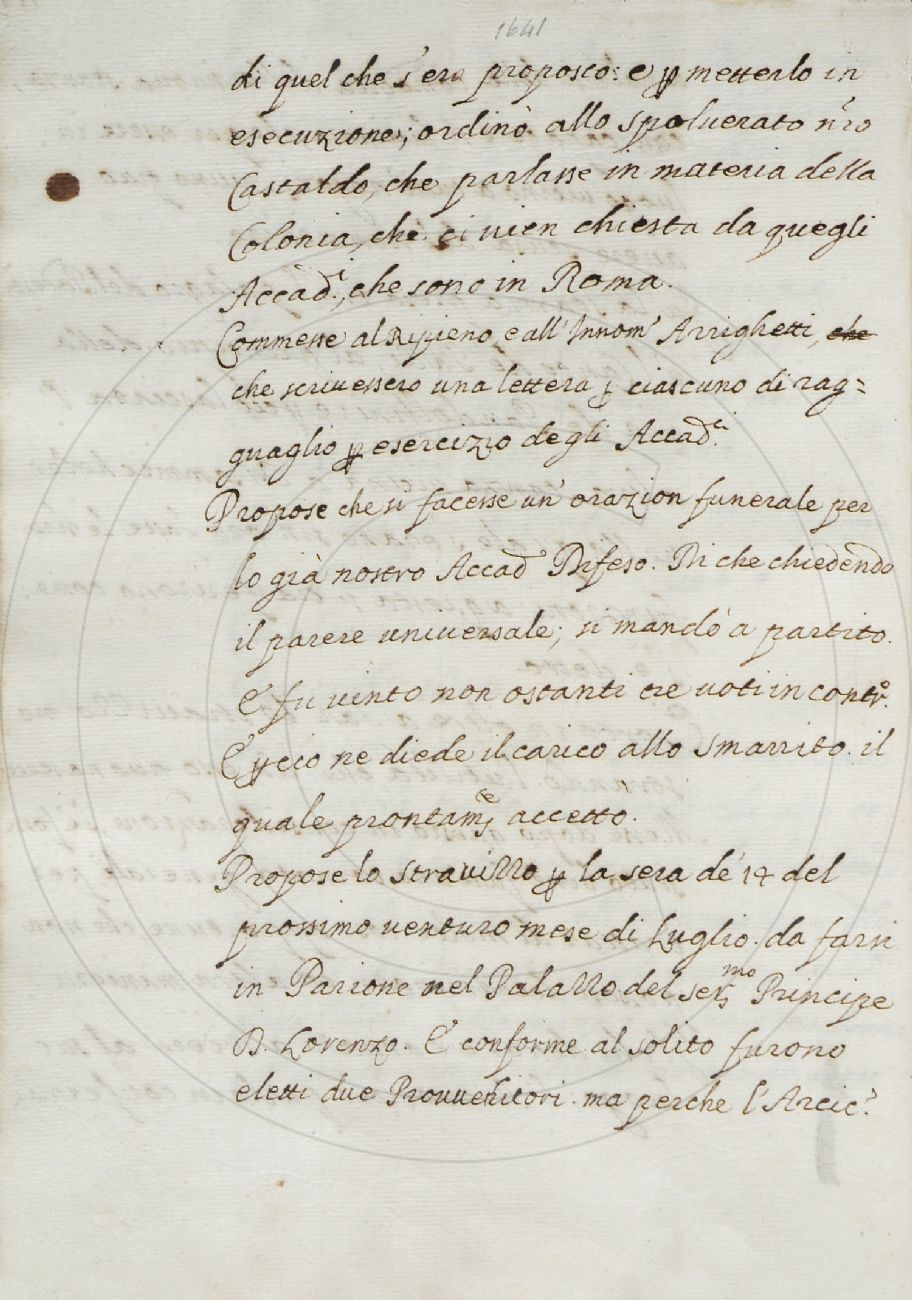 1641
di quel che s'era proposto: e p metterlo in
esecuzione; ordinò allo Spoluerato nro
Castaldo, che parlasse in materia della
Colonia, che ci uien chiesta da quegli
Accad.i, che sono in Roma.
Commesse al Ripieno, e all'Innom.o Arrighetti, che
che scriuessero una lettera p ciascuno di rag=
guaglio p esercizio degli Accad.i
Propose che si facesse un'orazion funerale per
lo già nostro Accad.o Difeso. Di che chiedendo
il parere uniuersale; si mandò a partito.
E fu uinto non ostanti tre uoti in contr.o
E p ciò ne diede il carico allo Smarrito. il
quale prontam.te accettò.
Propose lo strauizzo p la sera de' 14 del
prossimo uenturo mese di Luglio. da farsi
in Parione nel Palazzo del Ser.mo Principe
D. Lorenzo. E conforme al solito furono
eletti due Prouueditori. ma perche l'Arcic.o